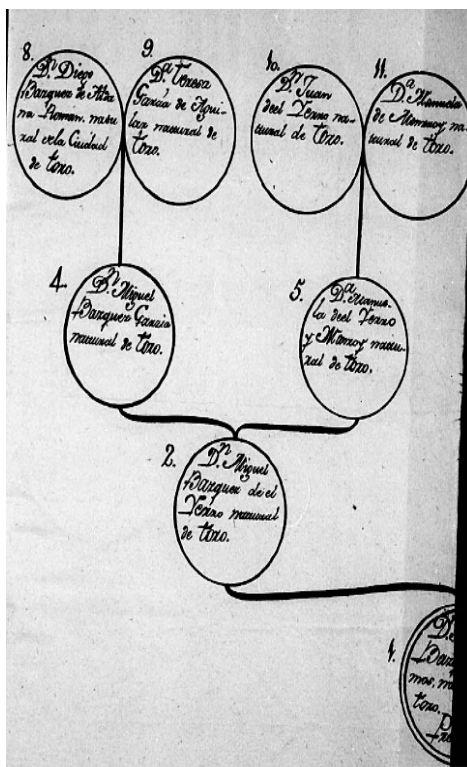 8.
Dn Diego
Bazquez de
na Roman. natu
ral de la Ciudad
de toro.
9.
Da Teresa
Garzia de Agui
lar natural de
toro.
10.
Dn Juan
deel Yerro na-
tural de toro.
11.
Da Manuela
de Monroy na-
tural de toro.
4.
Dn Miguel
Bazquez Garzia
natural de toro.
5.
Da Manue-
la deel Yerro
y Monroy natu-
ral de toro.
2.
Dn Miguel
Bazquez de el
Yerro natural
de toro.
1.
mos, n
toro.